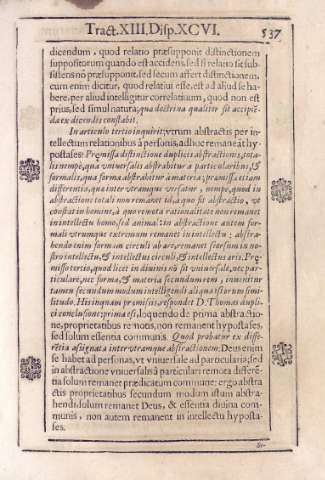 Tract. XIII. Disp. XCVI.
537
dicendum, quod relatio præsupponit distinctionem
suppositorum quando est accidens, sed si relatio sit sub-
sistens nõ præsupponit, sed secum affert distinctionem.
cum enim dicitur, quod relatiui esse, est ad aliud se ha-
bere, per aliud intelligitur correlatiuum, quod non est
prius, sed simul natura; qua doctrina qualiter sit accipiẽ-
da ex dicendis constabit.
In articulo tertio inquirit; vtrum abstractis per in-
tellectum relationibus à personis, adhuc remaneãt hy-
postases? Præmissa distinctione duplicis abstractionis, tota-
lis nempe, qua vniuersalis abstrahitur à particularibus, &
formalis, qua forma abstrahitur à materia; præmissa etiam
differentia, quæ inter vtramque versatur, nempe, quod in
abstractione totali non remanet id, à quo fit abstractio, vt
constat in homine, à quo remota rationalitate non remanet
in intellectu homo, sed animal: in abstractione autem for-
mali vtrumque extremum remanet in intellectu: abstra-
hendo enim formam circuli ab ære, remanet seorsum in no-
stro intellectu, & intellectus circuli, & intellectus æris. Præ-
misso tertio, quod licet in diuinis nõ sit vniuersale, nec par-
ticulare, nec forma, & materia secundum rem, inuenitur
tamen secundum modum intelligendi aliqua istorum simi-
litudo. His inquam præmissis, respondet D. Thomas dupli-
ci conclusione: prima est, loquendo de prima abstractio-
ne, proprietatibus remotis, non remanent hypostases,
sed solum essentia communis. Quod probatur ex diffe-
rẽtia assignata inter vtramque abstractionem: Deus enim
se habet ad personas, vt vniuersale ad particularia; sed
in abstractione vniuersalis à particulari remota differẽ-
tia solum remanet prædicatum commune: ergo abstra-
ctis proprietatibus secundum modum istum abstra-
hendi, solum remanet Deus, & essentia diuina com-
munis, non autem remanent in intellectu hyposta-
ses.